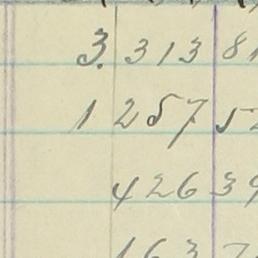 3. 313 8
1 257 5
426 39
163